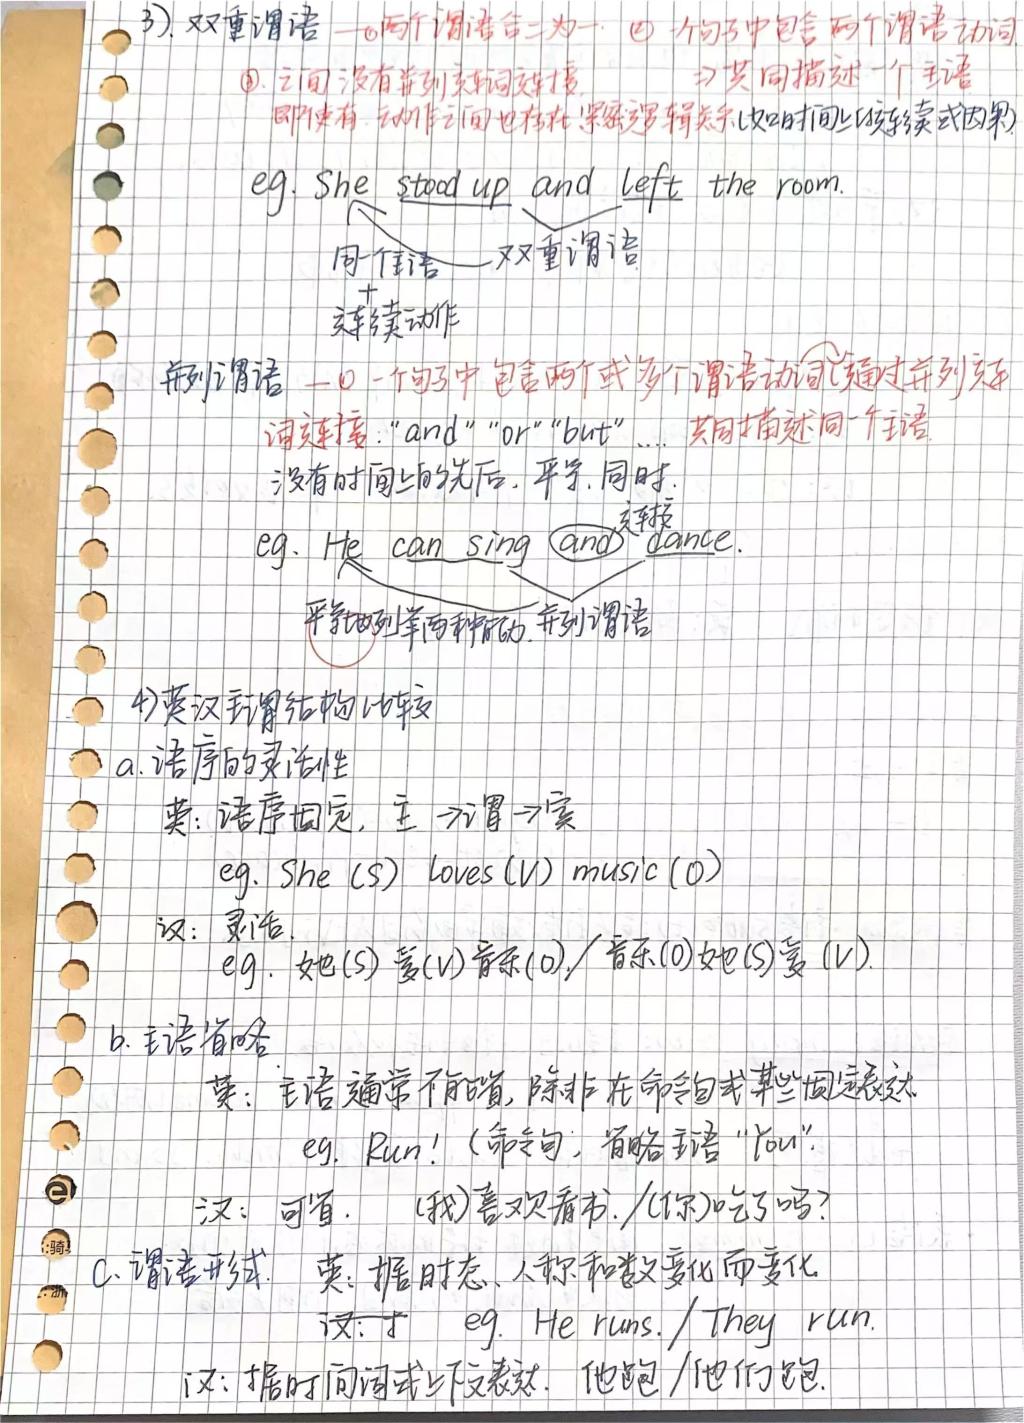 3). 双重谓语 —①两个谓语合二为一. ② 一个句子中包含两个谓语动词
③. 之间没有并列连词连接. ⇒共同描述一个主语
即使有, 动作之间也存在紧密逻辑关系(如时间上的接续或因果)
eg. She stood up and left the room.
同一个主语 — 双重谓语
+
连续动作
并列谓语 —① 一个句子中包含两个或多个谓语动词(通过并列连
词连接: "and" "or" "but" .... 共同描述同一个主语
没有时间上的先后. 平等. 同时.
连接
eg. He can sing and dance.
平等地列举两种能力. 并列谓语
4) 英汉主谓结构比较
a. 语序的灵活性
英: 语序固定, 主→谓→宾
eg. She (S) loves (V) music (O)
汉: 灵活.
eg. 她(S)爱(V)音乐(O)./音乐(O)她(S)爱(V).
b. 主语省略
英: 主语通常不能省, 除非在命令句或某些固定表达.
eg. Run! (命令句, 省略主语 "You".
汉: 可省. (我)喜欢看书./(你)吃了吗?
C. 谓语形式 英: 据时态、人称和数变化而变化
汉: eg. He runs. / They run.
汉: 据时间词或上下文表达. 他跑/他们跑.